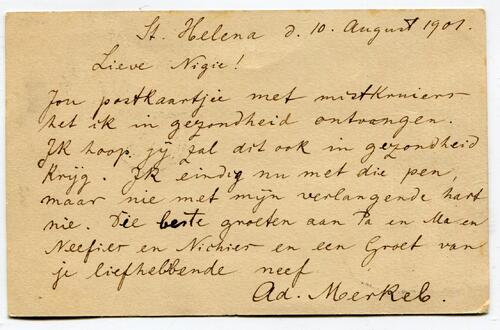 St. Helena d. 10. August 1901.
Lieve Nigie!
Jou postkaartjie met mistkruiers
het ik in gezondheid ontvangen.
Ik hoop jÿ zal dit ook in gezondheid
Kryg. Ik eindig nu met die pen,
maar nie met mÿn verlangende hart
nie. Die beste groeten aan Pa en Ma en
Neefies en Nichies en een Groet van
je liefhebbende neef
Ad. Merkel.